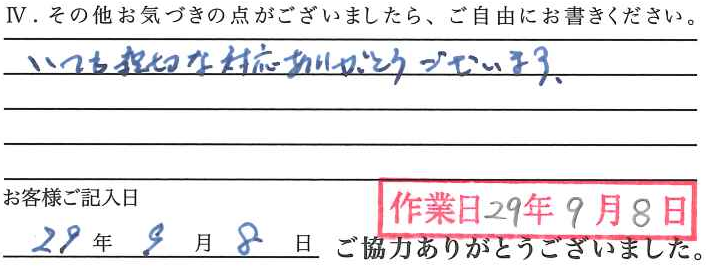 Ⅳ．その他お気づきの点がございましたら、ご自由にお書きください。
いつも親切な対応ありがとうございます。
お客様ご記入日
作業日29年9月8日
29年9月8日
ご協力ありがとうございました。